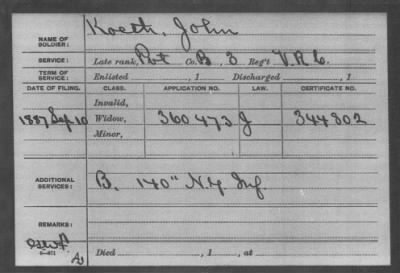 NAME OF SOLDIER: Koeth, John
SERVICE: Late rank, Pvt Co. B, 3 Reg't V.R.C.
TERM OF SERVICE: Enlisted , 1 Discharged , 1
DATE OF FILING. CLASS. APPLICATION NO. LAW. CERTIFICATE NO.
Invalid,
1887 Sep 10 Widow, 360473 J 344802
Minor,
ADDITIONAL SERVICES: B. 140" N.Y. Inf.
REMARKS:
Died , 1 , at